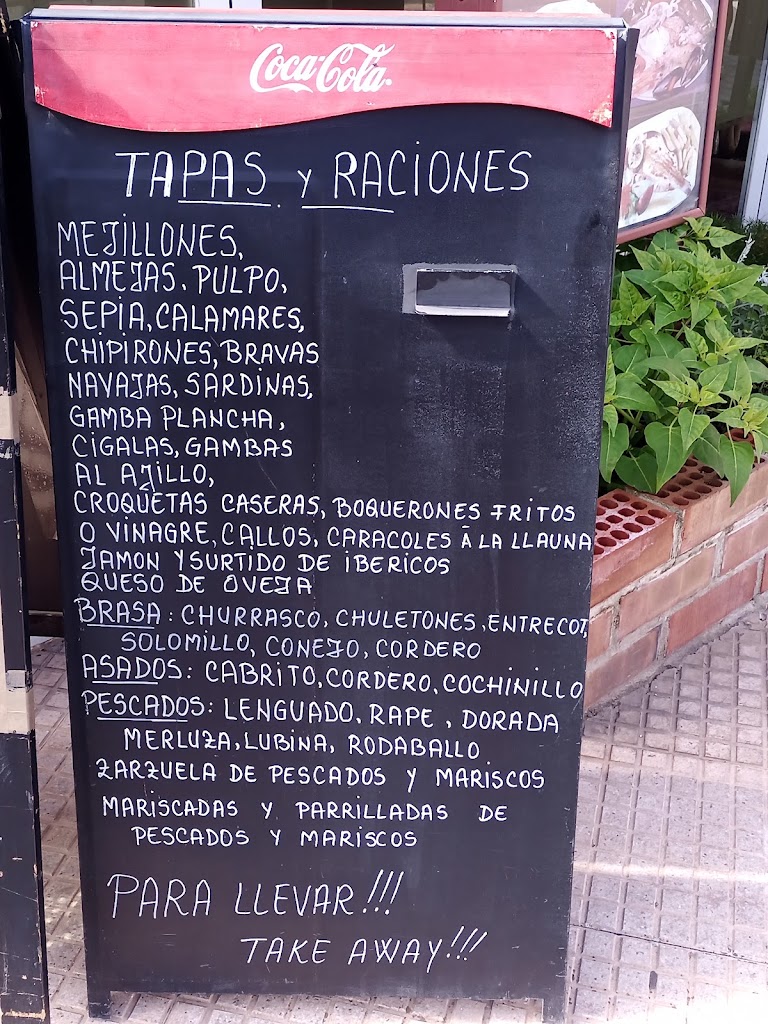 Coca-Cola
TAPAS Y RACIONES
MEJILLONES,
ALMEJAS, PULPO,
SEPIA, CALAMARES,
CHIPIRONES, BRAVAS
NAVAJAS, SARDINAS,
GAMBA PLANCHA,
CIGALAS, GAMBAS
AL AJILLO,
CROQUETAS CASERAS, BOQUERONES FRITOS
O VINAGRE, CALLOS, CARACOLES À LA LLAUNA
JAMON Y SURTIDO DE IBERICOS
QUESO DE OVEJA
BRASA: CHURRASCO, CHULETONES, ENTRECOT,
SOLOMILLO, CONEJO, CORDERO
ASADOS: CABRITO, CORDERO, COCHINILLO
PESCADOS: LENGUADO, RAPE, DORADA
MERLUZA, LUBINA, RODABALLO
ZARZUELA DE PESCADOS Y MARISCOS
MARISCADAS Y PARRILLADAS DE
PESCADOS Y MARISCOS
PARA LLEVAR!!!
TAKE AWAY!!!